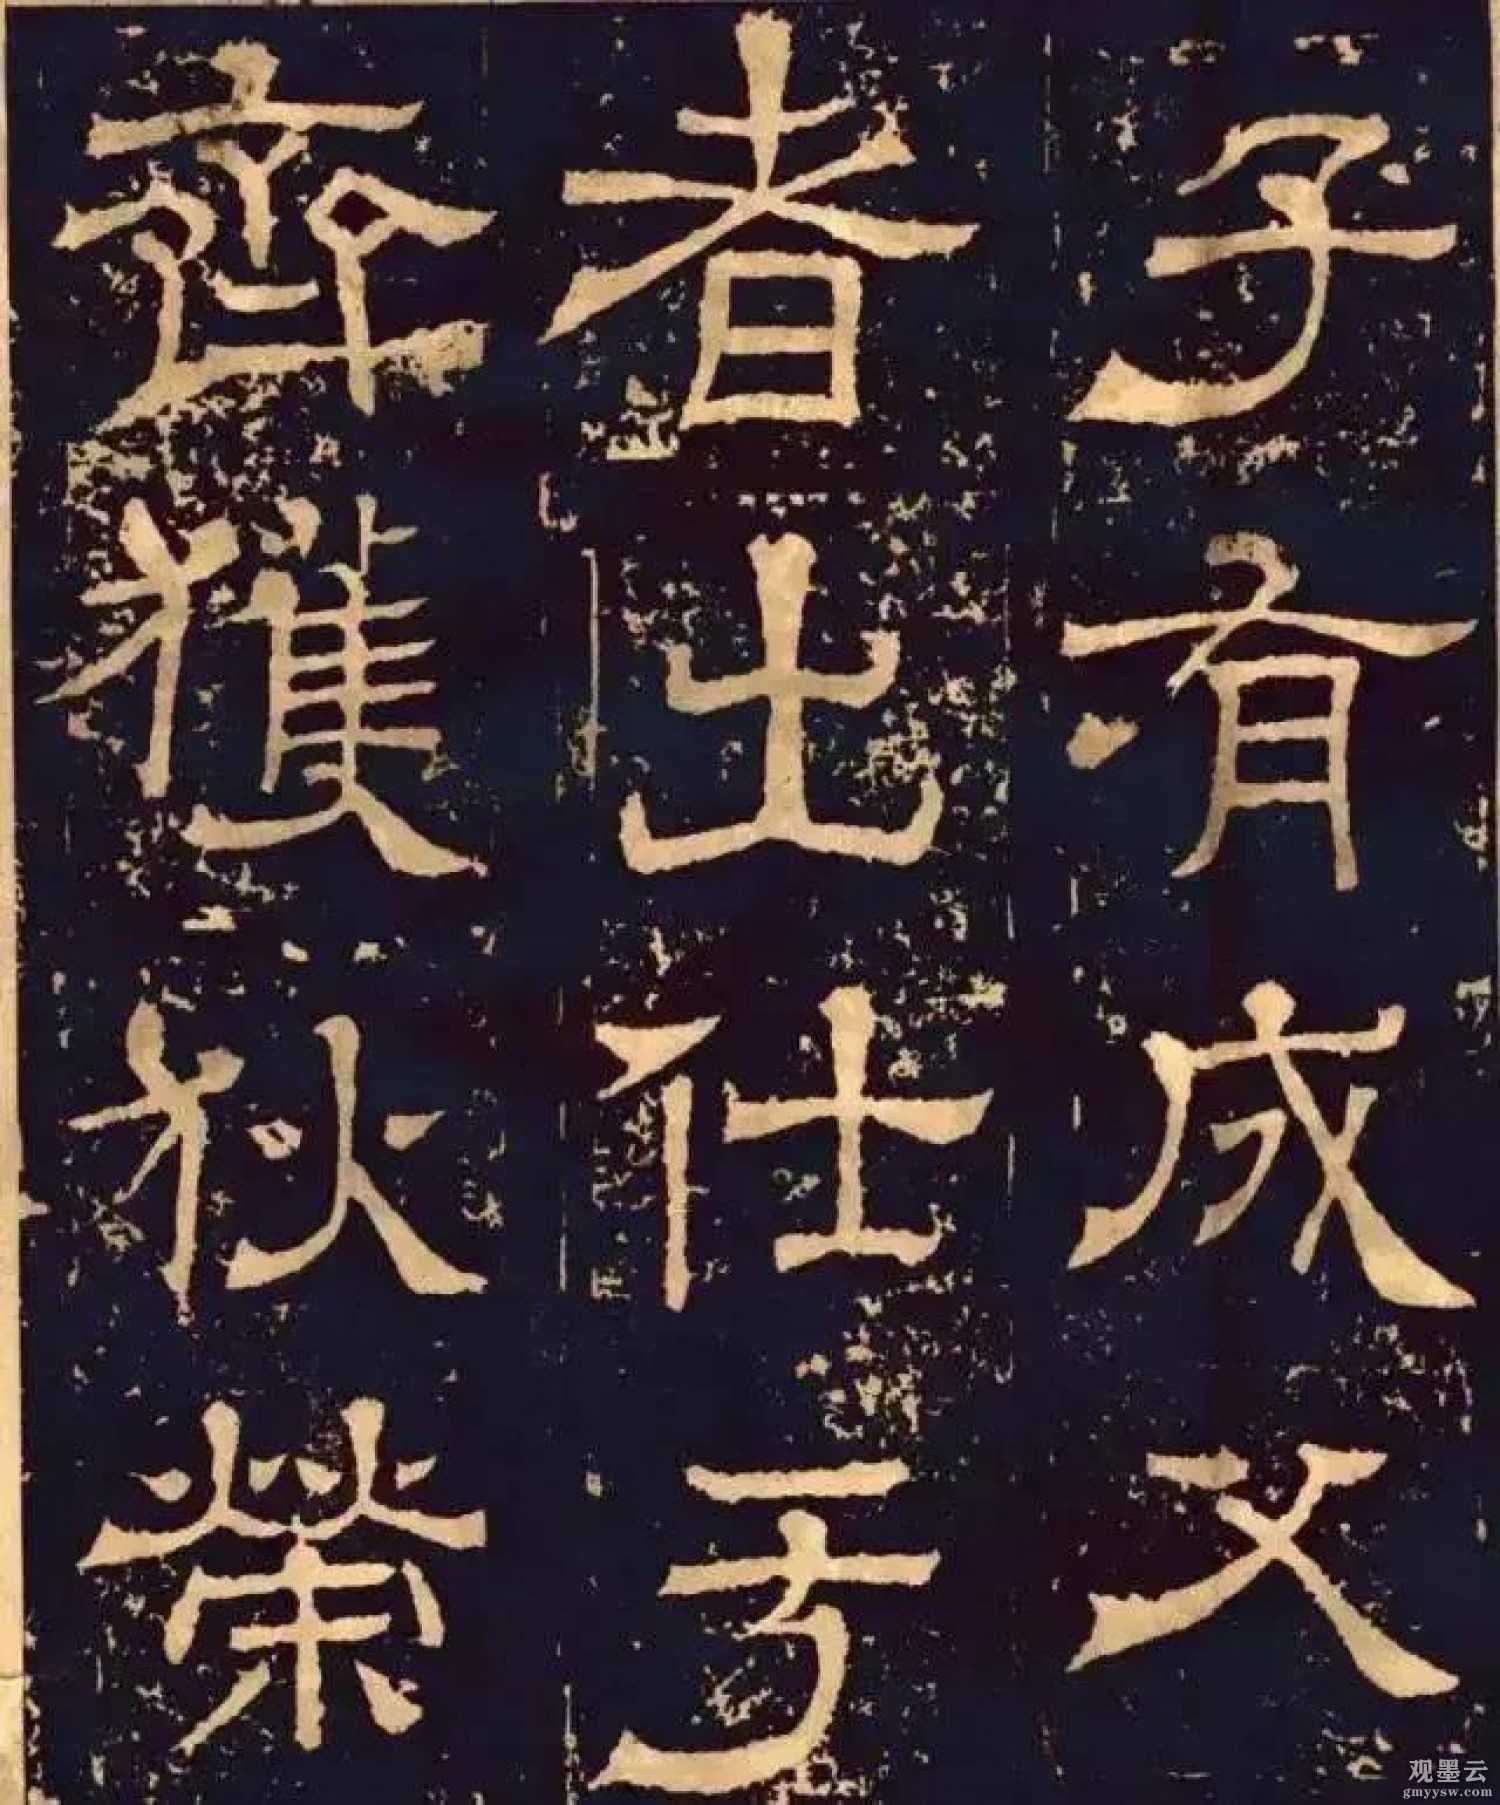 子有成父
者出仕于
齊獲狄榮
观墨云
gmyysw.com